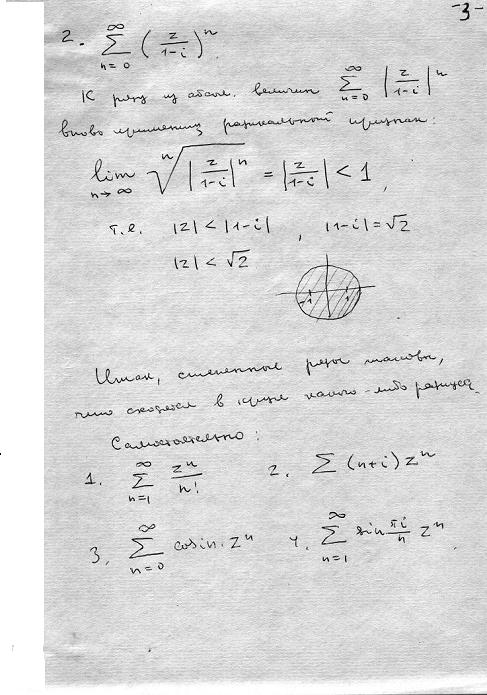 -3-
2. ∞ ∑ n=0 (z/(1-i))^n
К ряду из абсол. величин ∞ ∑ n=0 |z/(1-i)|^n
вновь применим радикальный признак:
lim n→∞ ⁿ√(|z/(1-i)|^n) = |z/(1-i)| < 1,
т.е. |z| < |1-i|, |1-i| = √2
|z| < √2
-1 1
Итак, степенные ряды таковы,
что сходятся в круге какого-либо радиуса.
Самостоятельно:
1. ∞ ∑ n=1 z^n/n! 2. ∑ (n+i) z^n
3. ∞ ∑ n=0 cos in · z^n 4. ∞ ∑ n=1 sin πi/n z^n